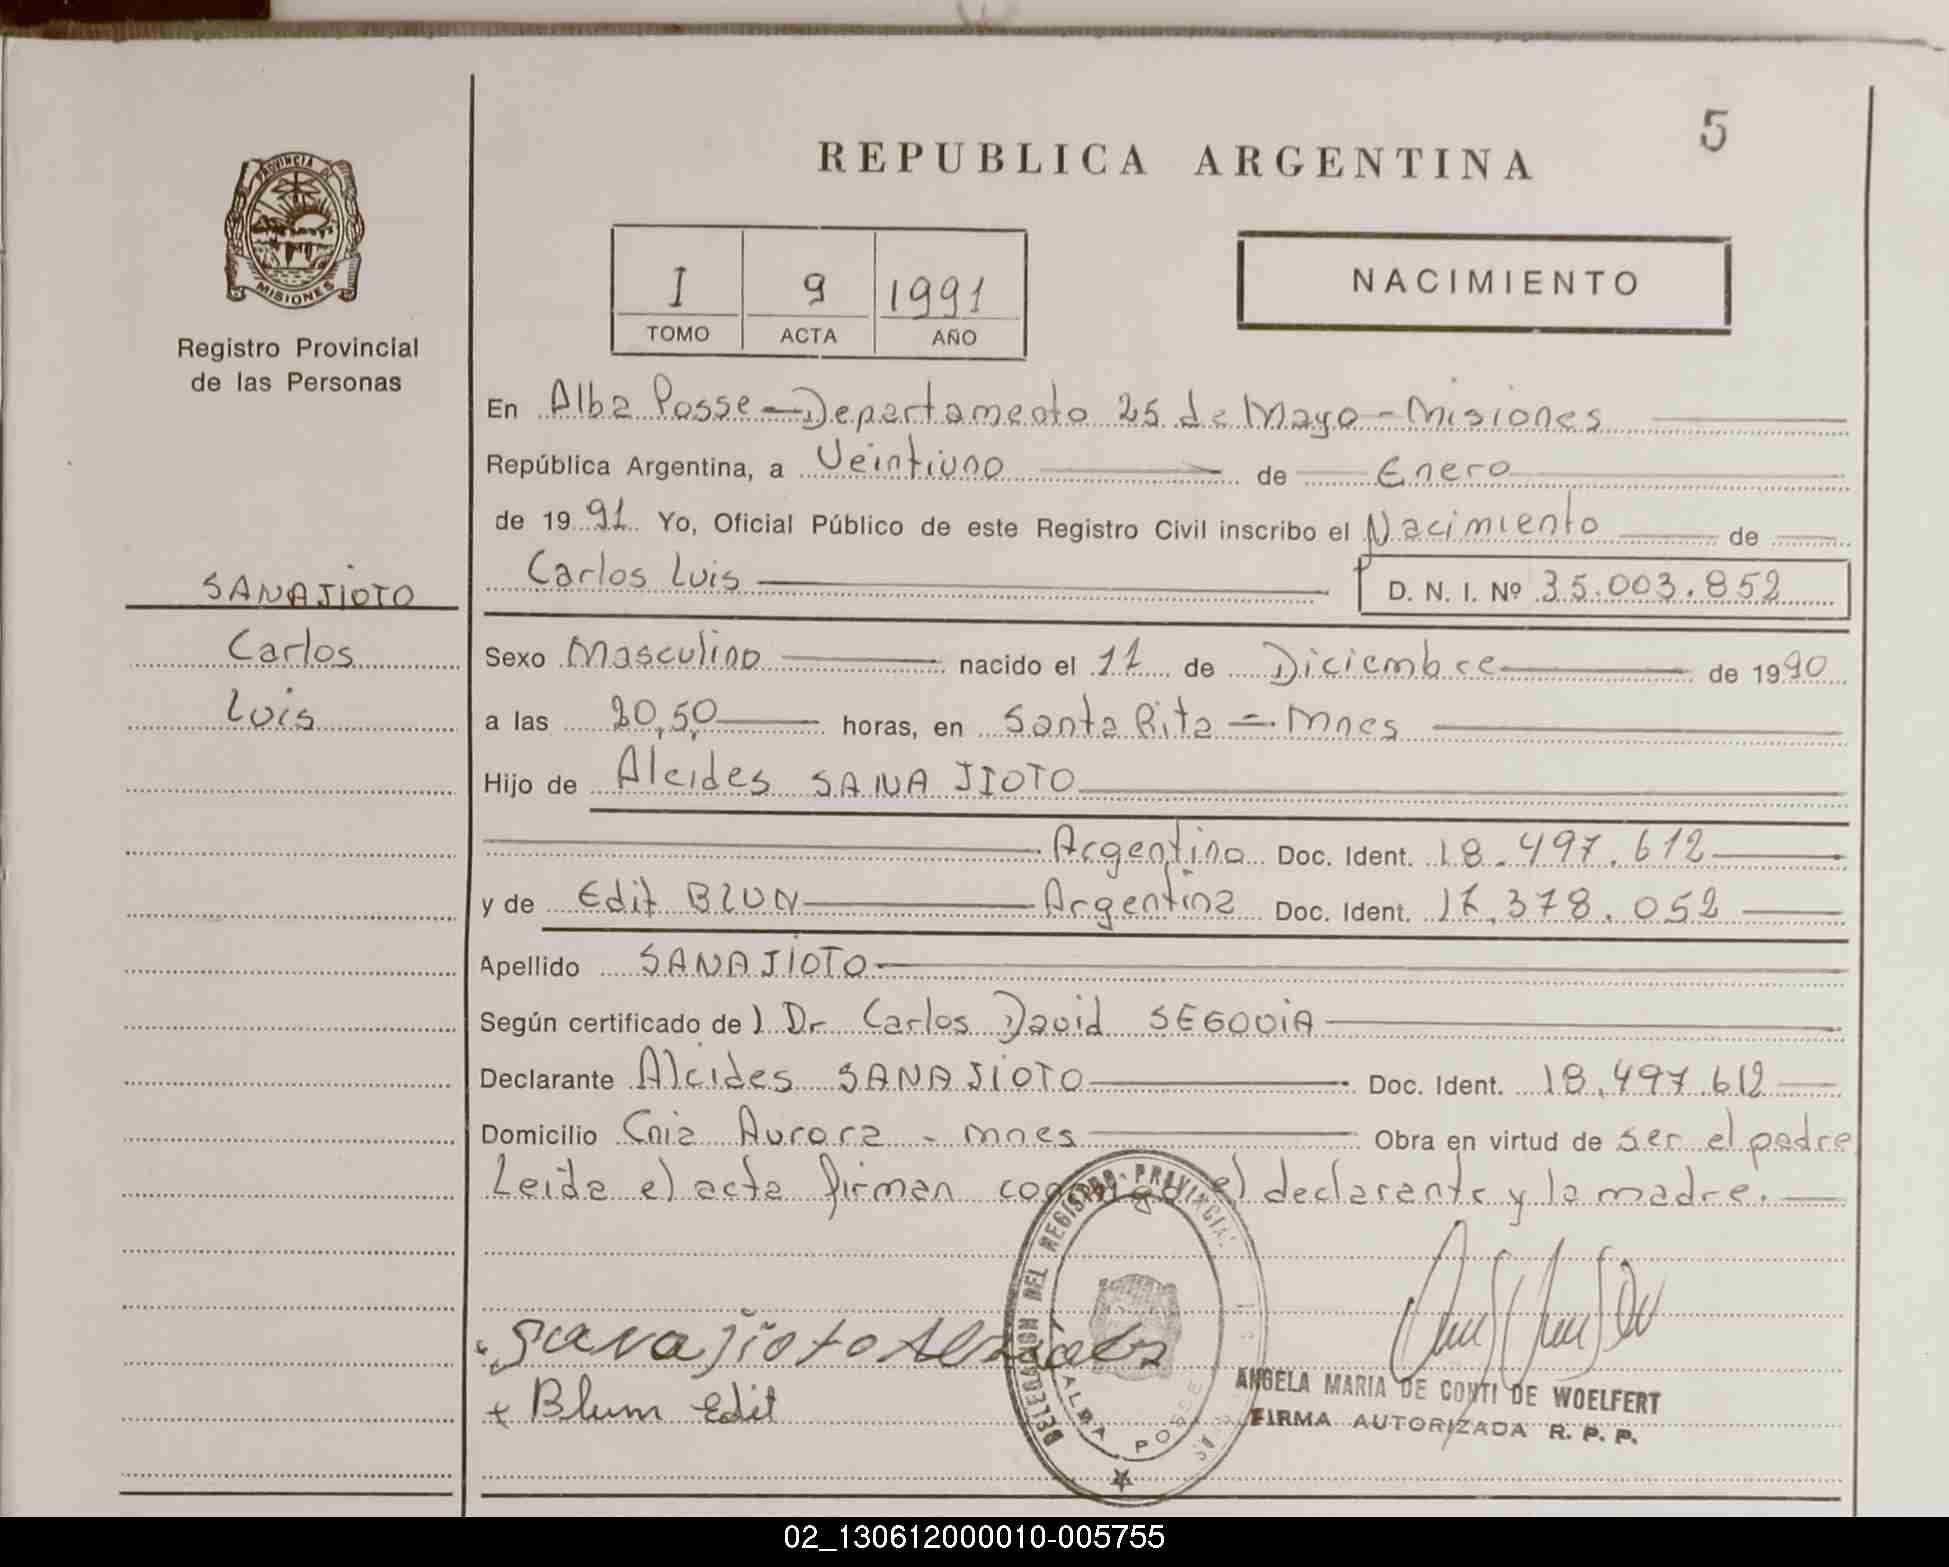 5
REPUBLICA ARGENTINA
PROVINCIA DE
MISIONES
Registro Provincial
de las Personas
I 9 1991
TOMO ACTA AÑO
NACIMIENTO
En Alba Posse - Departamento 25 de Mayo - Misiones
República Argentina, a Veintiuno de Enero
de 1991 Yo, Oficial Público de este Registro Civil inscribo el Nacimiento de
Carlos Luis D. N. I. Nº 35.003.852
SANAJIOTO
Carlos
Luis
Sexo Masculino nacido el 17 de Diciembre de 1990
a las 20,50 horas, en Santa Rita - Mnes
Hijo de Alcides SANAJIOTO
Argentino Doc. Ident. 18.497.612
y de Edit BLUN Argentina Doc. Ident. 17.378.052
Apellido SANAJIOTO
Según certificado de ) Dr Carlos David SEGOVIA
Declarante Alcides SANAJIOTO Doc. Ident. 18.497.612
Domicilio Cnia Aurora - mnes Obra en virtud de ser el padre
Leida el acta firman conmigo el declarante y la madre.
DELEGACION DEL REGISTRO PROVINCIAL
ALBA POSSE
Sanajioto Alcides
+ Blum Edit
ANGELA MARIA DE CONTI DE WOELFERT
FIRMA AUTORIZADA R. P. P.
02_130612000010-005755